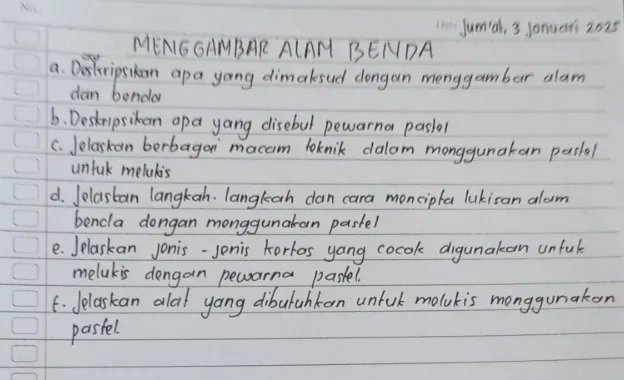 No.
Date Jum'at, 3 Januari 2025
MENGGAMBAR ALAM BENDA
a. Deskripsikan apa yang dimaksud dengan menggambar alam
dan benda
b. Deskripsikan apa yang disebut pewarna pastel
c. Jelaskan berbagai macam teknik dalam menggunakan pastel
untuk melukis
d. Jelaskan langkah-langkah dan cara mencipta lukisan alam
benda dengan menggunakan pastel
e. Jelaskan jenis-jenis kertas yang cocok digunakan untuk
melukis dengan pewarna pastel.
f. Jelaskan alat yang dibutuhkan untuk melukis menggunakan
pastel.